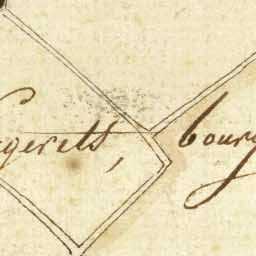 gerets, bour